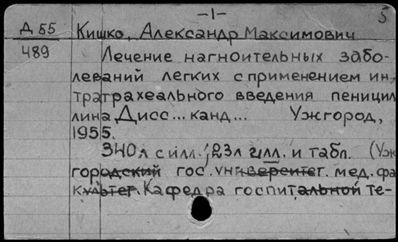 -1- 5
Д 55 Кишко, Александр Максимович
489 Лечение нагноительных забо-
леваний легких с применением ин-
тратрахеального введения пеницил
лина Дисс... канд... Ужгород,
1955.
340л с илл.; 23л илл. и табл. (Уж
городский гос. университет. мед. фа
культет. Кафедра госпитальной те-